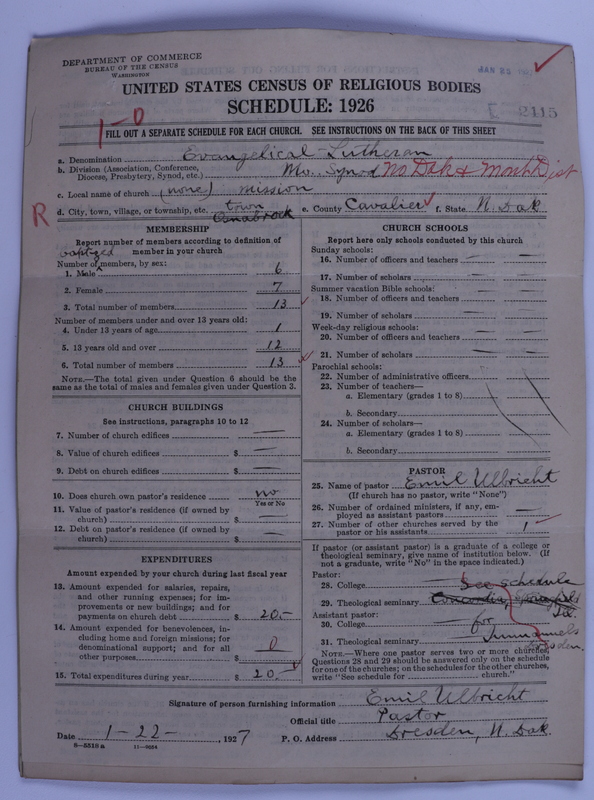 DEPARTMENT OF COMMERCE
BUREAU OF THE CENSUS
WASHINGTON
JAN 25
UNITED STATES CENSUS OF RELIGIOUS BODIES
SCHEDULE: 1926
2115
1-0
FILL OUT A SEPARATE SCHEDULE FOR EACH CHURCH. SEE INSTRUCTIONS ON THE BACK OF THIS SHEET
a. Denomination Evangelical Lutheran
b. Division (Association, Conference, Diocese, Presbytery, Synod, etc.) Mo. Synod No Dak & Mont Dist
c. Local name of church (none) mission
R
d. City, town, village, or township, etc. town Osnabrock e. County Cavalier f. State N. Dak
MEMBERSHIP
Report number of members according to definition of member in your church
baptized
Number of members, by sex:
1. Male 6
2. Female 7
3. Total number of members 13
Number of members under and over 13 years old:
4. Under 13 years of age 1
5. 13 years old and over 12
6. Total number of members 13
NOTE.—The total given under Question 6 should be the
same as the total of males and females given under Question 3.
CHURCH BUILDINGS
See instructions, paragraphs 10 to 12
7. Number of church edifices —
8. Value of church edifices $ —
9. Debt on church edifices $ —
10. Does church own pastor's residence no
Yes or No
11. Value of pastor's residence (if owned by
church) $ —
12. Debt on pastor's residence (if owned by
church) $ —
EXPENDITURES
Amount expended by your church during last fiscal year
13. Amount expended for salaries, repairs,
and other running expenses; for im-
provements or new buildings; and for
payments on church debt $ 20.-
14. Amount expended for benevolences, in-
cluding home and foreign missions; for
denominational support; and for all
other purposes $ 0
15. Total expenditures during year $ 20.-
CHURCH SCHOOLS
Report here only schools conducted by this church
Sunday schools:
16. Number of officers and teachers —
17. Number of scholars —
Summer vacation Bible schools:
18. Number of officers and teachers —
19. Number of scholars —
Week-day religious schools:
20. Number of officers and teachers —
21. Number of scholars —
Parochial schools:
22. Number of administrative officers
23. Number of teachers—
a. Elementary (grades 1 to 8)
b. Secondary
24. Number of scholars—
a. Elementary (grades 1 to 8)
b. Secondary
PASTOR
25. Name of pastor Emil Ulbricht
(If church has no pastor, write "None")
26. Number of ordained ministers, if any, em-
ployed as assistant pastors —
27. Number of other churches served by the
pastor or his assistants 1
If pastor (or assistant pastor) is a graduate of a college or
theological seminary, give name of institution below. (If
not a graduate, write "No" in the space indicated.)
Pastor:
28. College See schedule
29. Theological seminary Concordia, Springfield Ill.
Assistant pastor:
30. College for
31. Theological seminary Immanuels Dresden.
NOTE.—Where one pastor serves two or more churches,
Questions 28 and 29 should be answered only on the schedule
for one of the churches; on the schedules for the other churches,
write "See schedule for ............ church."
Signature of person furnishing information Emil Ulbricht
Official title Pastor
Date 1-22-, 1927 P. O. Address Dresden, N. Dak.
8—5519 a 11—9654